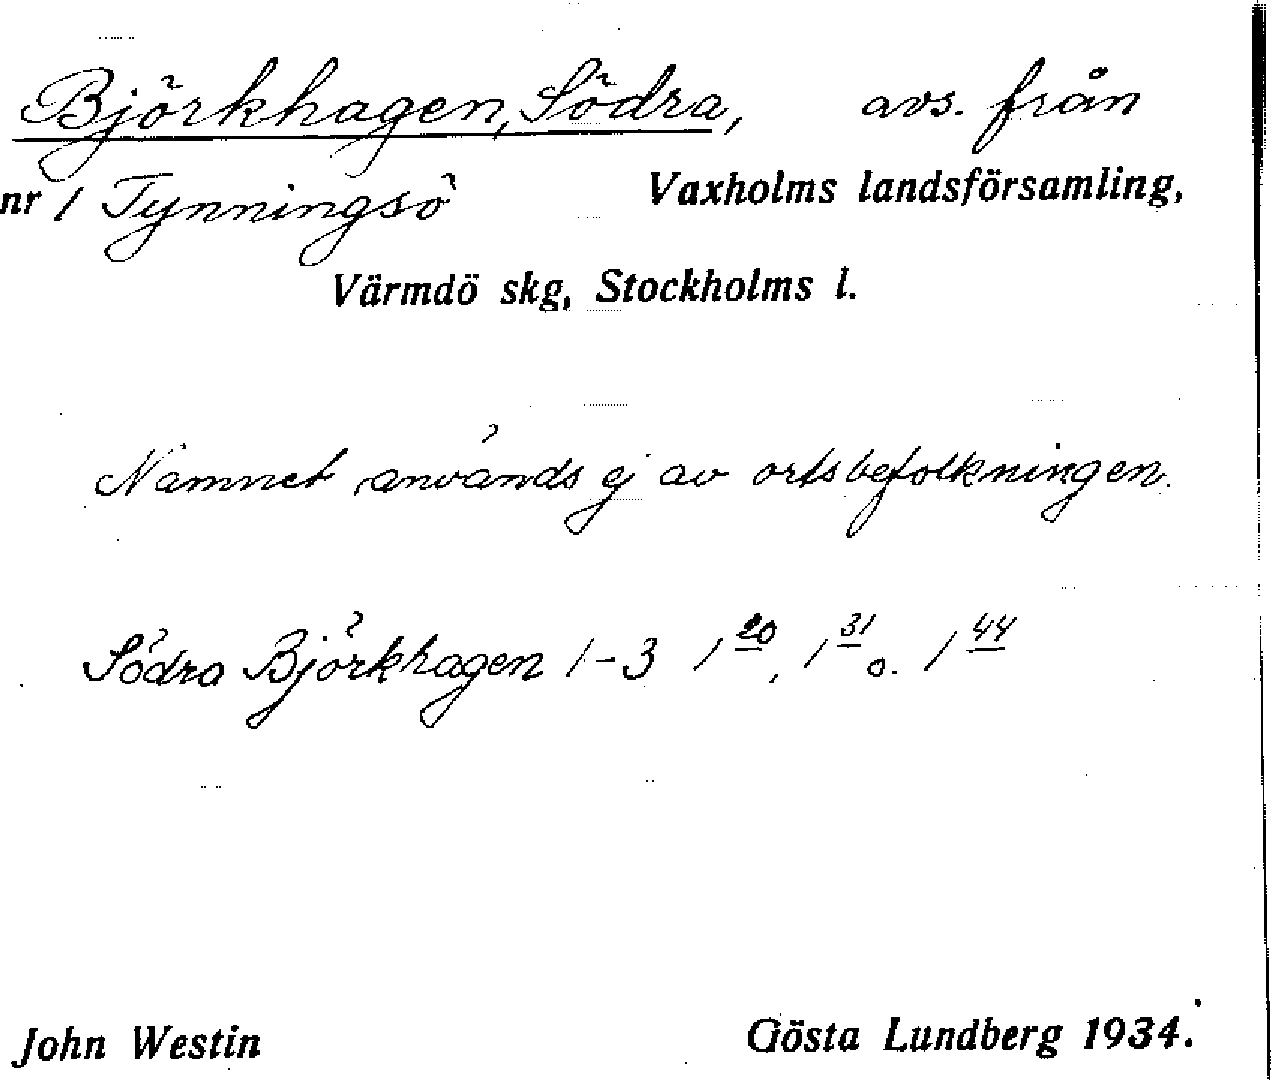 Björkhagen, Södra, avs. från
nr 1 Tynningsö Vaxholms landsförsamling,
Värmdö skg, Stockholms l.
Namnet används ej av ortsbefolkningen.
Södra Björkhagen 1-3 1 20, 1 31 o. 1 44
John Westin Gösta Lundberg 1934.